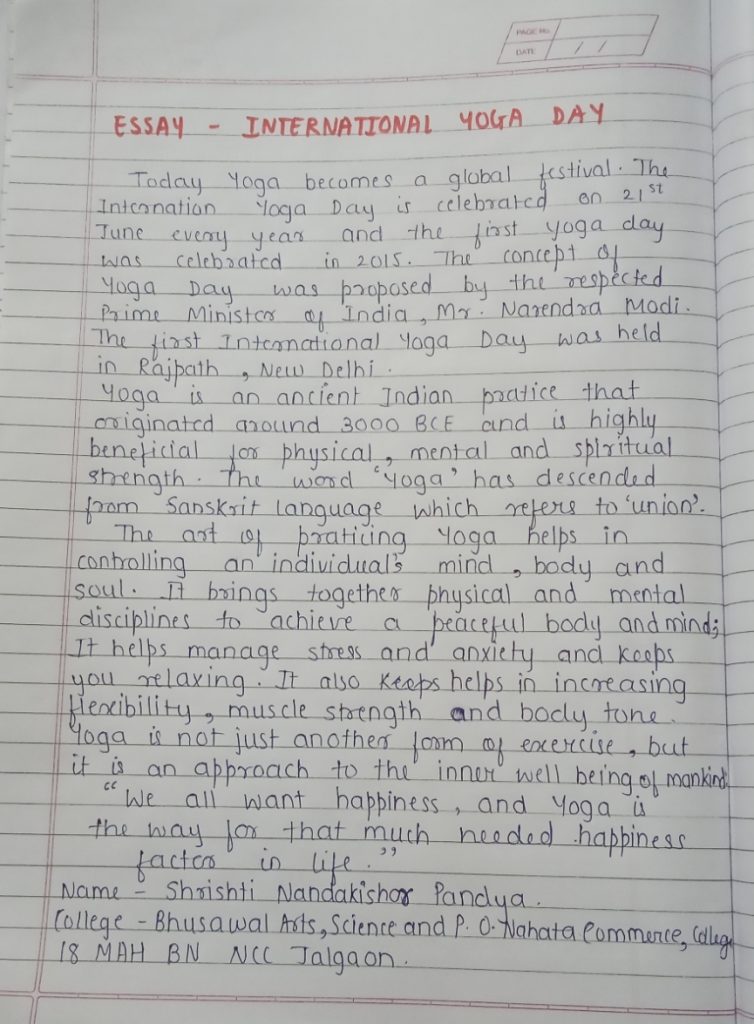 PAGE No.
DATE / /
ESSAY - INTERNATIONAL YOGA DAY
Today Yoga becomes a global festival. The
Internation Yoga Day is celebrated on 21st
June every year and the first yoga day
was celebrated in 2015. The concept of
Yoga Day was proposed by the respected
Prime Minister of India, Mr. Narendra Modi.
The first International Yoga Day was held
in Rajpath, New Delhi.
Yoga is an ancient Indian pratice that
originated around 3000 BCE and is highly
beneficial for physical, mental and spiritual
strength. The word 'Yoga' has descended
from Sanskrit language which refers to 'union'.
The art of praticing Yoga helps in
controlling an individual's mind, body and
soul. It brings together physical and mental
disciplines to achieve a peaceful body and mind;
It helps manage stress and anxiety and keeps
you relaxing. It also keeps helps in increasing
flexibility, muscle strength and body tone.
Yoga is not just another form of exercise, but
it is an approach to the inner well being of mankind
"We all want happiness, and Yoga is
the way for that much needed happiness
factor in life."
Name - Shrishti Nandakishor Pandya.
College - Bhusawal Arts, Science and P. O. Nahata Commerce, College
18 MAH BN NCC Jalgaon.